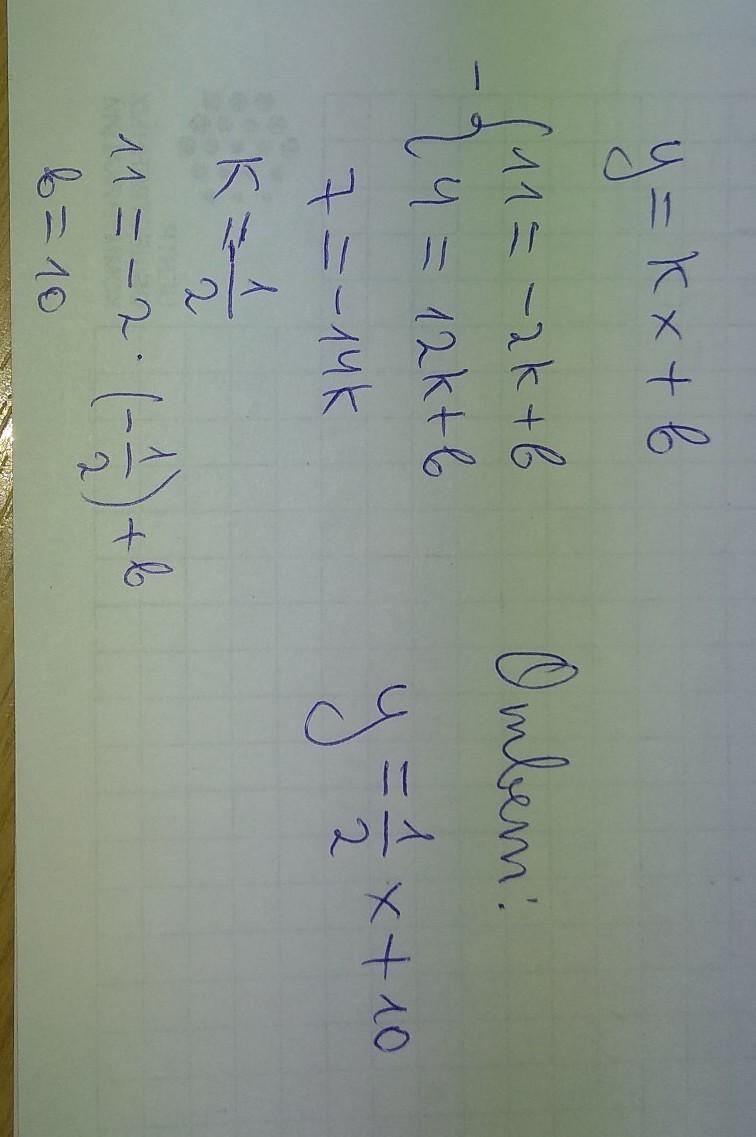 y = kx + b
- { 11 = -2k + b
4 = 12k + b
7 = -14k
k = -1/2
11 = -2 · (-1/2) + b
b = 10
Ответ:
y = 1/2 x + 10